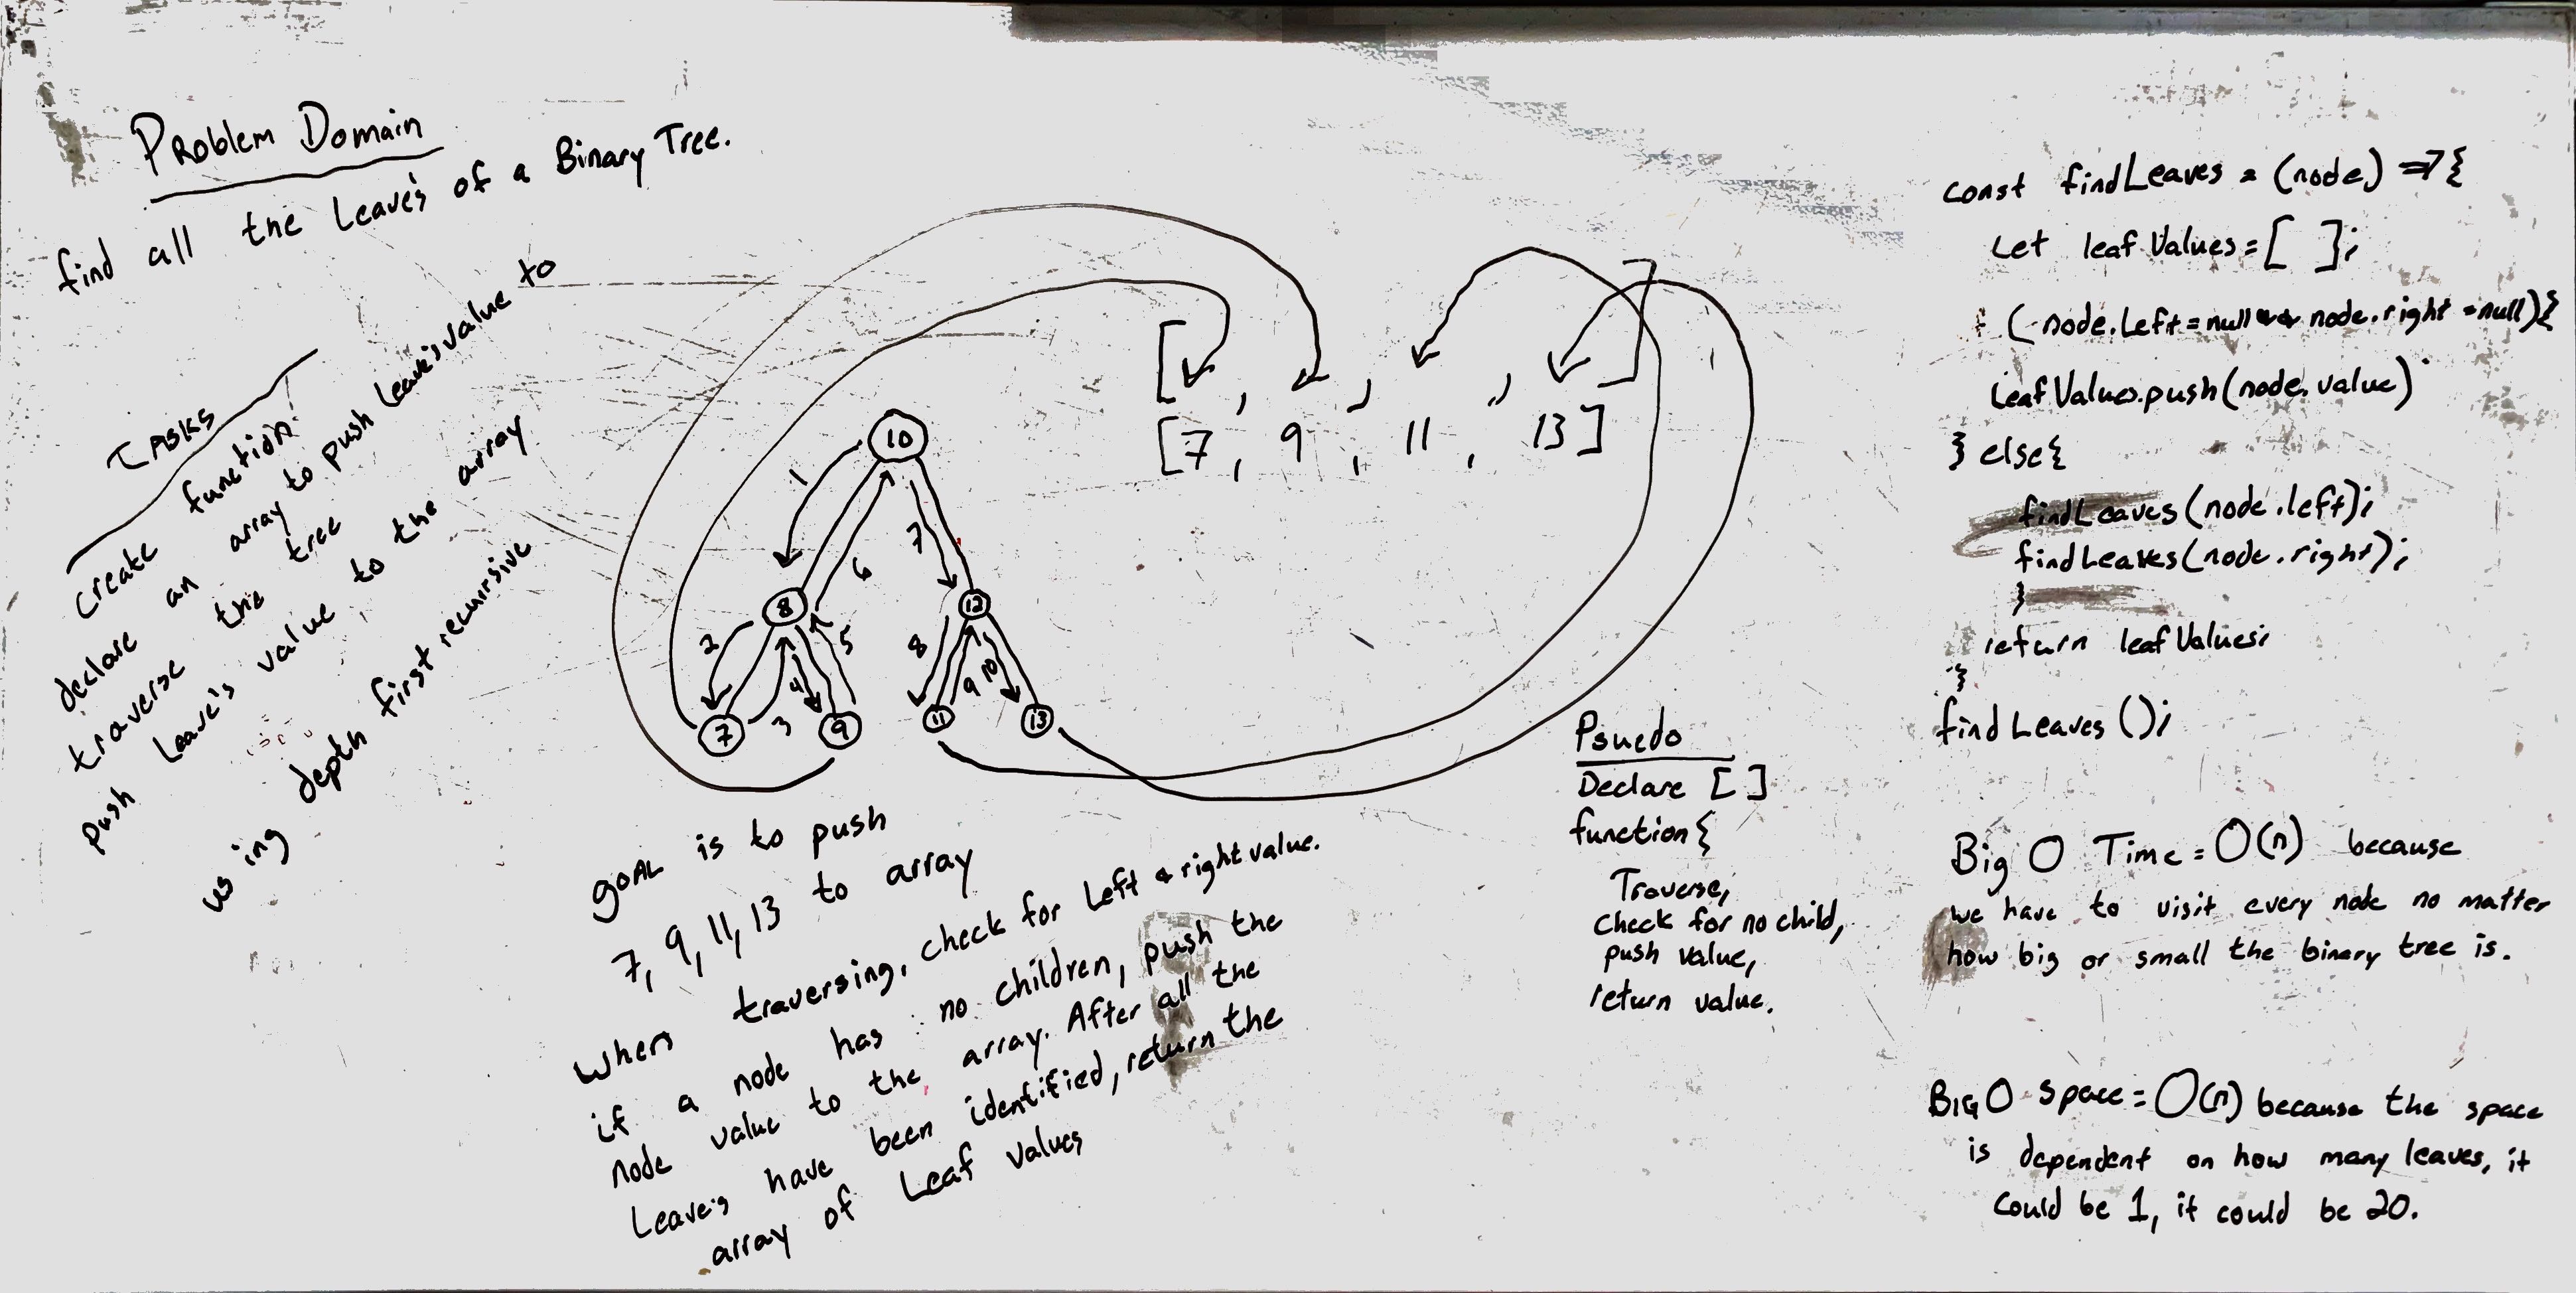 Problem Domain
find all the Leave's of a Binary Tree.
TASKS
create function
declare an array to push leave's value to
traverse the tree
push leave's value to the array
using depth first recursive
[ , , , ]
[7, 9, 11, 13]
10
1
7
6
8
12
2
5
8
4
9
10
3
7
9
11
13
goal is to push
7, 9, 11, 13 to array
when traversing, check for left & right value.
if a node has no children, push the
node value to the array. After all the
Leave's have been identified, return the
array of Leaf values
Psuedo
Declare []
function{
Traverse,
check for no child,
push value,
return value.
const findLeaves = (node) =>{
Let leafValues = [ ];
(node.left = null && node.right = null){
leafValues.push(node.value)
} else{
findLeaves(node.left);
findLeaves(node.right);
}
return leafValues;
}
findLeaves();
Big O Time = O(n) because
we have to visit every node no matter
how big or small the binary tree is.
BIG O space = O(n) because the space
is dependent on how many leaves, it
could be 1, it could be 20.